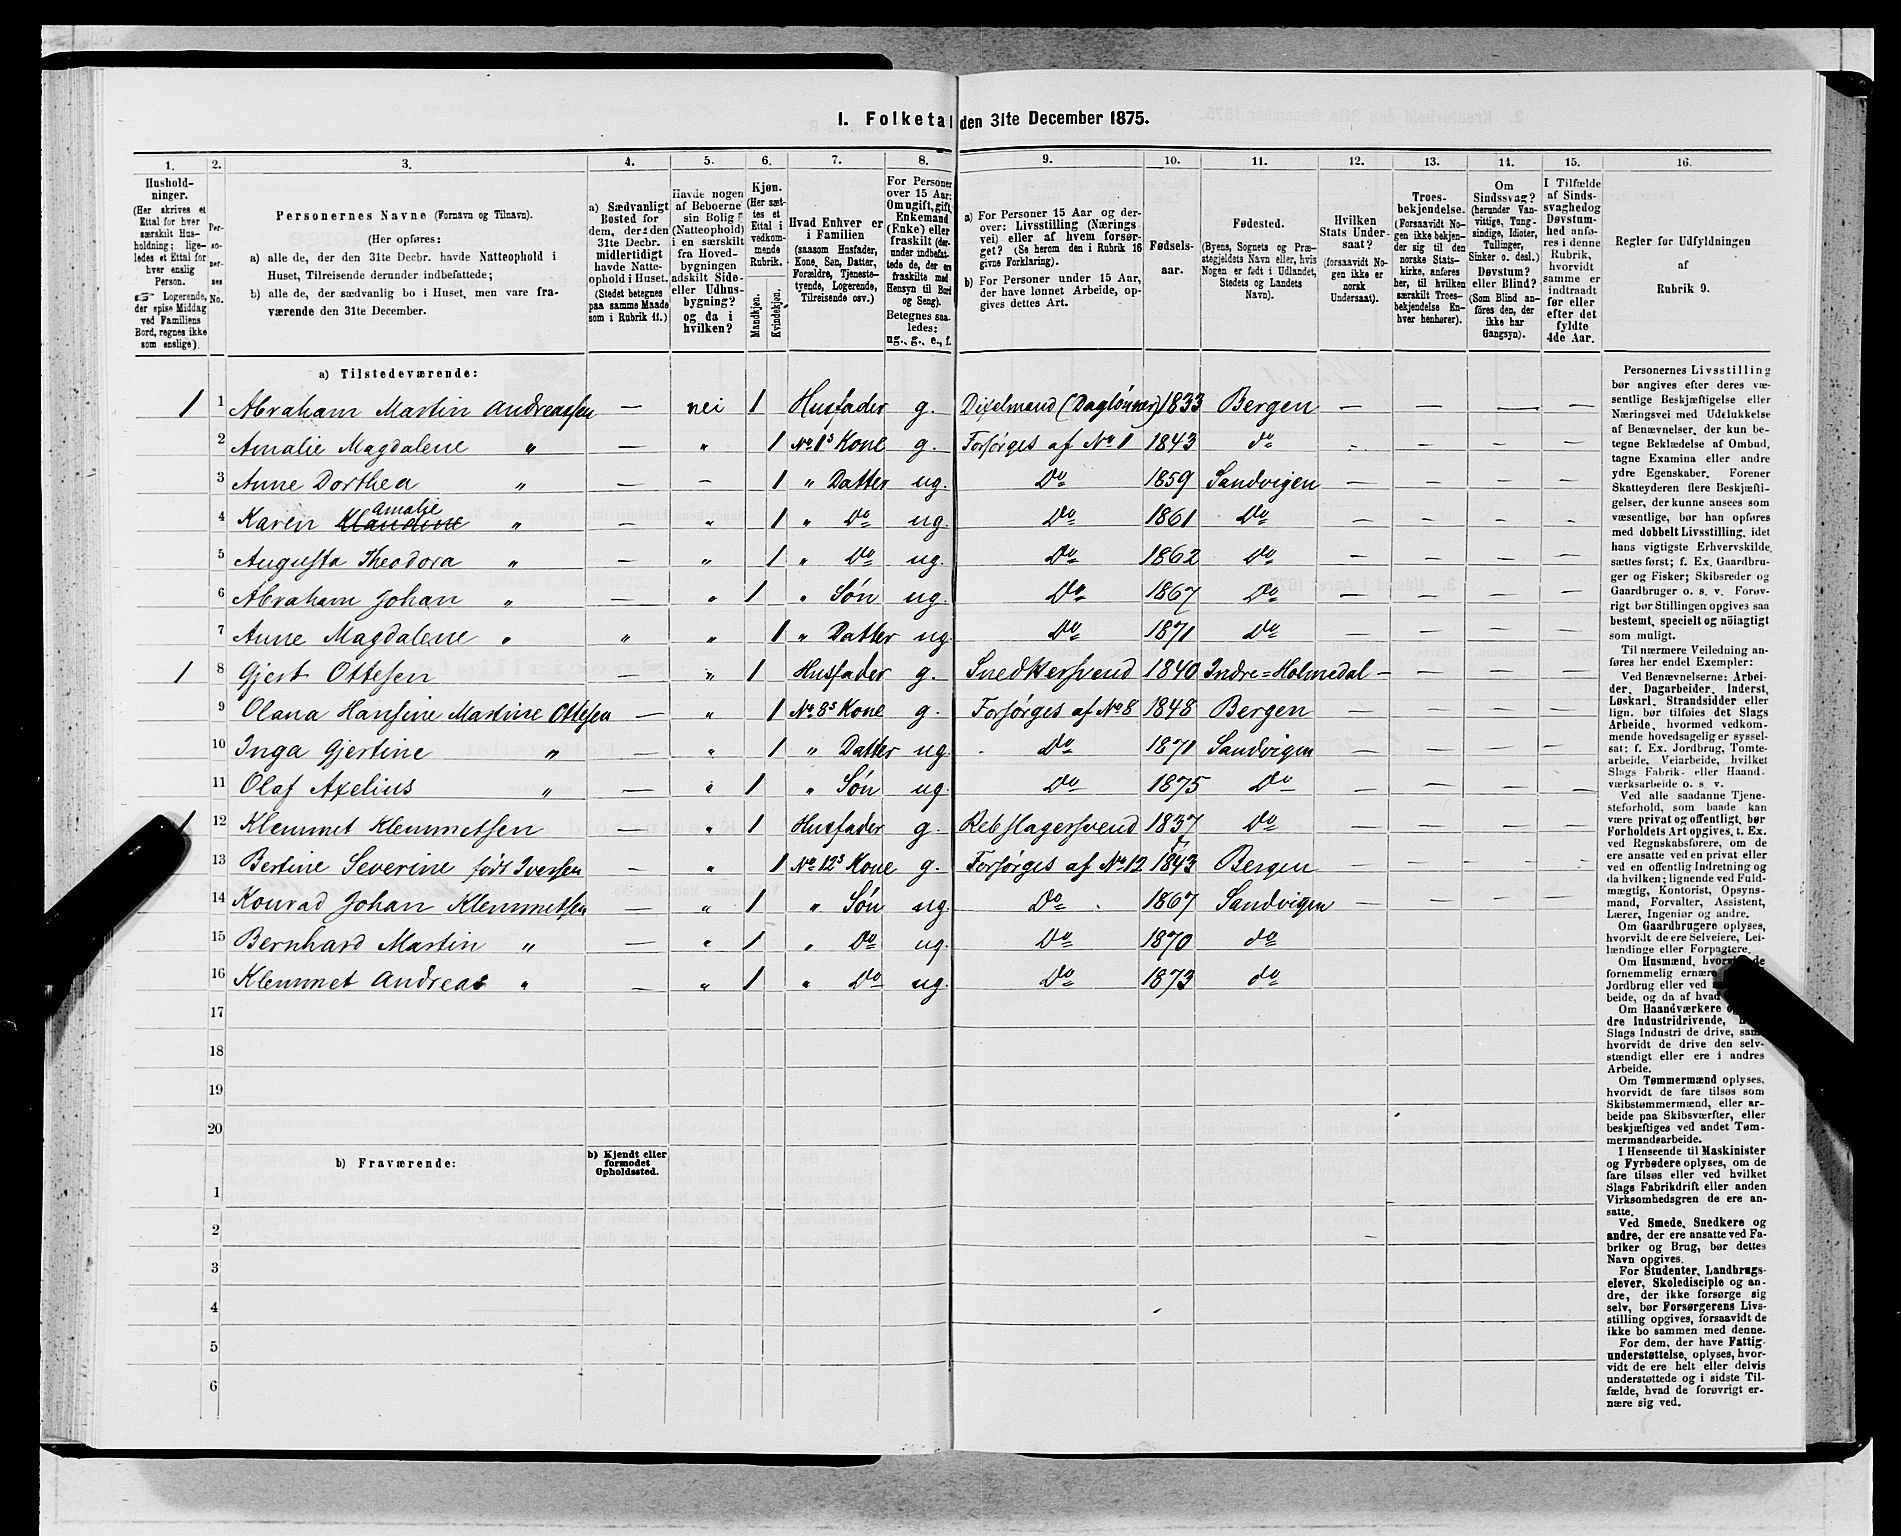 1. Folketal den 31te December 1875.
1. 2. 3. 4. 5. 6. 7. 8. 9. 10. 11. 12. 13. 14. 15. 16.
Hushold-
ninger.
(Her skrives et
Ettal for hver
særskilt Hus-
holdning; lige-
ledes et Ettal for
hver enslig
Person.
☞ Logerende,
der spise Middag
ved Familiens
Bord, regnes ikke
som enslige).
Per-
so-
ner-
nes
No.
Personernes Navne (Fornavn og Tilnavn).
(Her opføres:
a) alle de, der den 31te Decbr. havde Natteophold i
Huset, Tilreisende derunder indbefattede;
b) alle de, der sædvanlig bo i Huset, men vare fra-
værende den 31te December.
a) Sædvanligt
Bosted for
dem, der den
31te Decbr.
midlertidigt
havde Natte-
ophold i Huset.
(Stedet betegnes
paa samme Maade
som i Rubrik 11.)
Havde nogen
af Beboerne
sin Bolig
(Natteophold)
i en særskilt
fra Hoved-
bygningen
adskilt Side-
eller Udhus-
bygning?
og da i
hvilken?
Kjøn.
(Her sæt-
tes et
Ettal i
vedkom-
mende
Rubrik.
Mandkjøn.
Kvindekjøn.
Hvad Enhver er
i Familien
(saasom Husfader,
Kone, Søn, Datter,
Forældre, Tjeneste-
tyende, Logerende,
Tilreisende osv.)
For Personer
over 15 Aar:
Om ugift, gift,
Enkemand
(Enke) eller
fraskilt (der-
under indbefat-
tede de, der ere
fraskilte med
Hensyn til Bord
og Seng).
Betegnes saa-
ledes:
ug., g., e., f.
a) For Personer 15 Aar og der-
over: Livsstilling (Nærings-
vei) eller af hvem forsør-
get? (Se herom den i Rubrik 16
givne Forklaring).
b) For Personer under 15 Aar,
der have lønnet Arbeide, op-
gives dettes Art.
Fødsels-
aar.
Fødested.
(Byens, Sognets og Præ-
stegjeldets Navn eller, hvis
Nogen er født i Udlandet,
Stedets og Landets
Navn).
Hvilken
Stats Under-
saat?
(forsaavidt No-
gen ikke er
norsk
Undersaat).
Troes-
bekjendelse.
(Forsaavidt No-
gen ikke bekjen-
der sig til den
norske Stats-
kirke, anføres
her, til hvilken
særskilt Troes-
bekjendelse En-
hver henhører).
Om
Sindssvag?
(herunder Van-
vittige, Tung-
sindige, Idioter,
Tullinger,
Sinker o. desl.)
Døvstum?
eller Blind?
(Som Blind an-
føres den, der
ikke har
Gangsyn).
I Tilfælde
af Sinds-
svaghed og
Døvstum-
hed anfø-
res i denne
Rubrik,
hvorvidt
samme er
indtraadt
før eller
efter det
fyldte
4de Aar.
Regler for Udfyldningen
af
Rubrik 9.
a) Tilstedeværende:
1 1 Abraham Martin Andreassen — nei 1 Husfader g. Dixelmand (Dagløner) 1833 Bergen — — — —
2 Amalie Magdalene " — " 1 No 1s Kone g. Forsørges af No 1 1843 do — — — —
3 Anne Dorthea " — – 1 " Datter ug. Do 1859 Sandvigen — — — —
4 Karen Klaudine Amalie " — " 1 " Do ug. Do 1861 Do — — — —
5 Augusta Theodora " — " 1 " Do ug. Do 1862 Do — — — —
6 Abraham Johan " — " 1 " Søn ug. Do 1867 Do — — — —
7 Anne Magdalene " " " 1 " Datter ug. Do 1871 Do — — — —
1 8 Gjert Ottesen " 1 Husfader g. Snedkersvend 1840 Indre=Holmedal — — — —
9 Olana Hansine Martine Ottesen — " 1 No 8s Kone g. Forsørges af No 8 1848 Bergen — — — —
10 Inga Gjertine " — " 1 " Datter ug. Do 1871 Sandvigen — — — —
11 Olaf Axelius " — " 1 " Søn ug. Do 1875 Do — — — —
1 12 Klemmet Klemmetsen — " 1 Husfader g. Rebslagersvend 1837 Do — — — —
13 Bertine Severine født Iversen — " 1 No 12s Kone g. Forsørges af No 12 1843 Bergen — — — —
14 Konrad Johan Klemmetsen — " 1 " Søn ug. Do 1867 Sandvigen — — — —
15 Bernhard Martin " — " 1 " Do ug. Do 1870 do — — — —
16 Klemmet Andreas " — " 1 " Do ug. Do 1873 do — — — —
17
18
19
20
b) Fraværende:
b) Kjendt eller
formodet
Opholdssted.
1
2
3
4
5
6
Personernes Livsstilling
bør angives efter deres væ-
sentlige Beskjæftigelse eller
Næringsvei med Udelukkelse
af Benævnelser, der kun be-
tegne Beklædelse af Ombud,
tagne Examina eller andre
ydre Egenskaber. Forener
Skatteyderen flere Beskjæfti-
gelser, der kunne ansees som
væsentlige, bør han opføres
med dobbelt Livsstilling, idet
hans vigtigste Erhvervskilde
sættes først; f. Ex. Gaardbru-
ger og Fisker; Skibsreder og
Gaardbruger o. s. v. Forøv-
rigt bør Stillingen opgives saa
bestemt, specielt og nöiagtigt
som muligt.
Til nærmere Veiledning an-
føres her endel Exempler:
Ved Benævnelserne: Arbei-
der, Dagarbeider, Inderst,
Løskarl, Strandsidder eller
lign. bør tilføies det Slags
Arbeide, hvormed vedkom-
mende hovedsagelig er syssel-
sat; f. Ex. Jordbrug, Tomte-
arbeide, Veiarbeide, hvilket
Slags Fabrik- eller Haand-
værksarbeide o. s. v.
Ved alle saadanne Tjene-
steforhold, som baade kan
være privat og offentligt, bør
Forholdets Art opgives, t. Ex.
ved Regnskabsførere, om de
ere ansatte ved en privat eller
ved en offentlig Indretning og
da hvilken; lignende ved Fuld-
mægtig, Kontorist, Opsyns-
mand, Forvalter, Assistent,
Lærer, Ingeniør og andre.
Om Gaardbrugere oplyses,
hvorvidt de ere Selveiere, Lei-
lændinge eller Forpagtere.
Om Husmænd, hvorvidt de
fornemmelig ernære
Jordbrug eller ved
beide, og da af hvad
Om Haandværkere og
dre Industridrivende,
Slags Industri de drive, samt
hvorvidt de drive den selv-
stændigt eller ere i andres
Arbeide.
Om Tømmermænd oplyses,
hvorvidt de fare tilsøs som
Skibstømmermænd, eller ar-
beide paa Skibsværfter, eller
beskjæftiges ved andet Tøm-
mermandsarbeide.
I Henseende til Maskinister
og Fyrbødere oplyses, om de
fare tilsøs eller ved hvilket
Slags Fabrikdrift eller anden
Virksomhedsgren de ere an-
satte.
Ved Smede, Snedkere og
andre, der ere ansatte ved Fa-
briker og Brug, bør dettes
Navn opgives.
For Studenter, Landbrugs-
elever, Skoledisciple og an-
dre, der ikke forsørge sig
selv, bør Forsørgerens Livs-
stilling opgives, forsaavidt de
ikke bo sammen med denne.
For dem, der have Fattig-
understøttelse, oplyses, hvor-
vidt de ere helt eller delvis
understøttede og i sidste Til-
fælde, hvad de forøvrigt er-
nære sig ved.